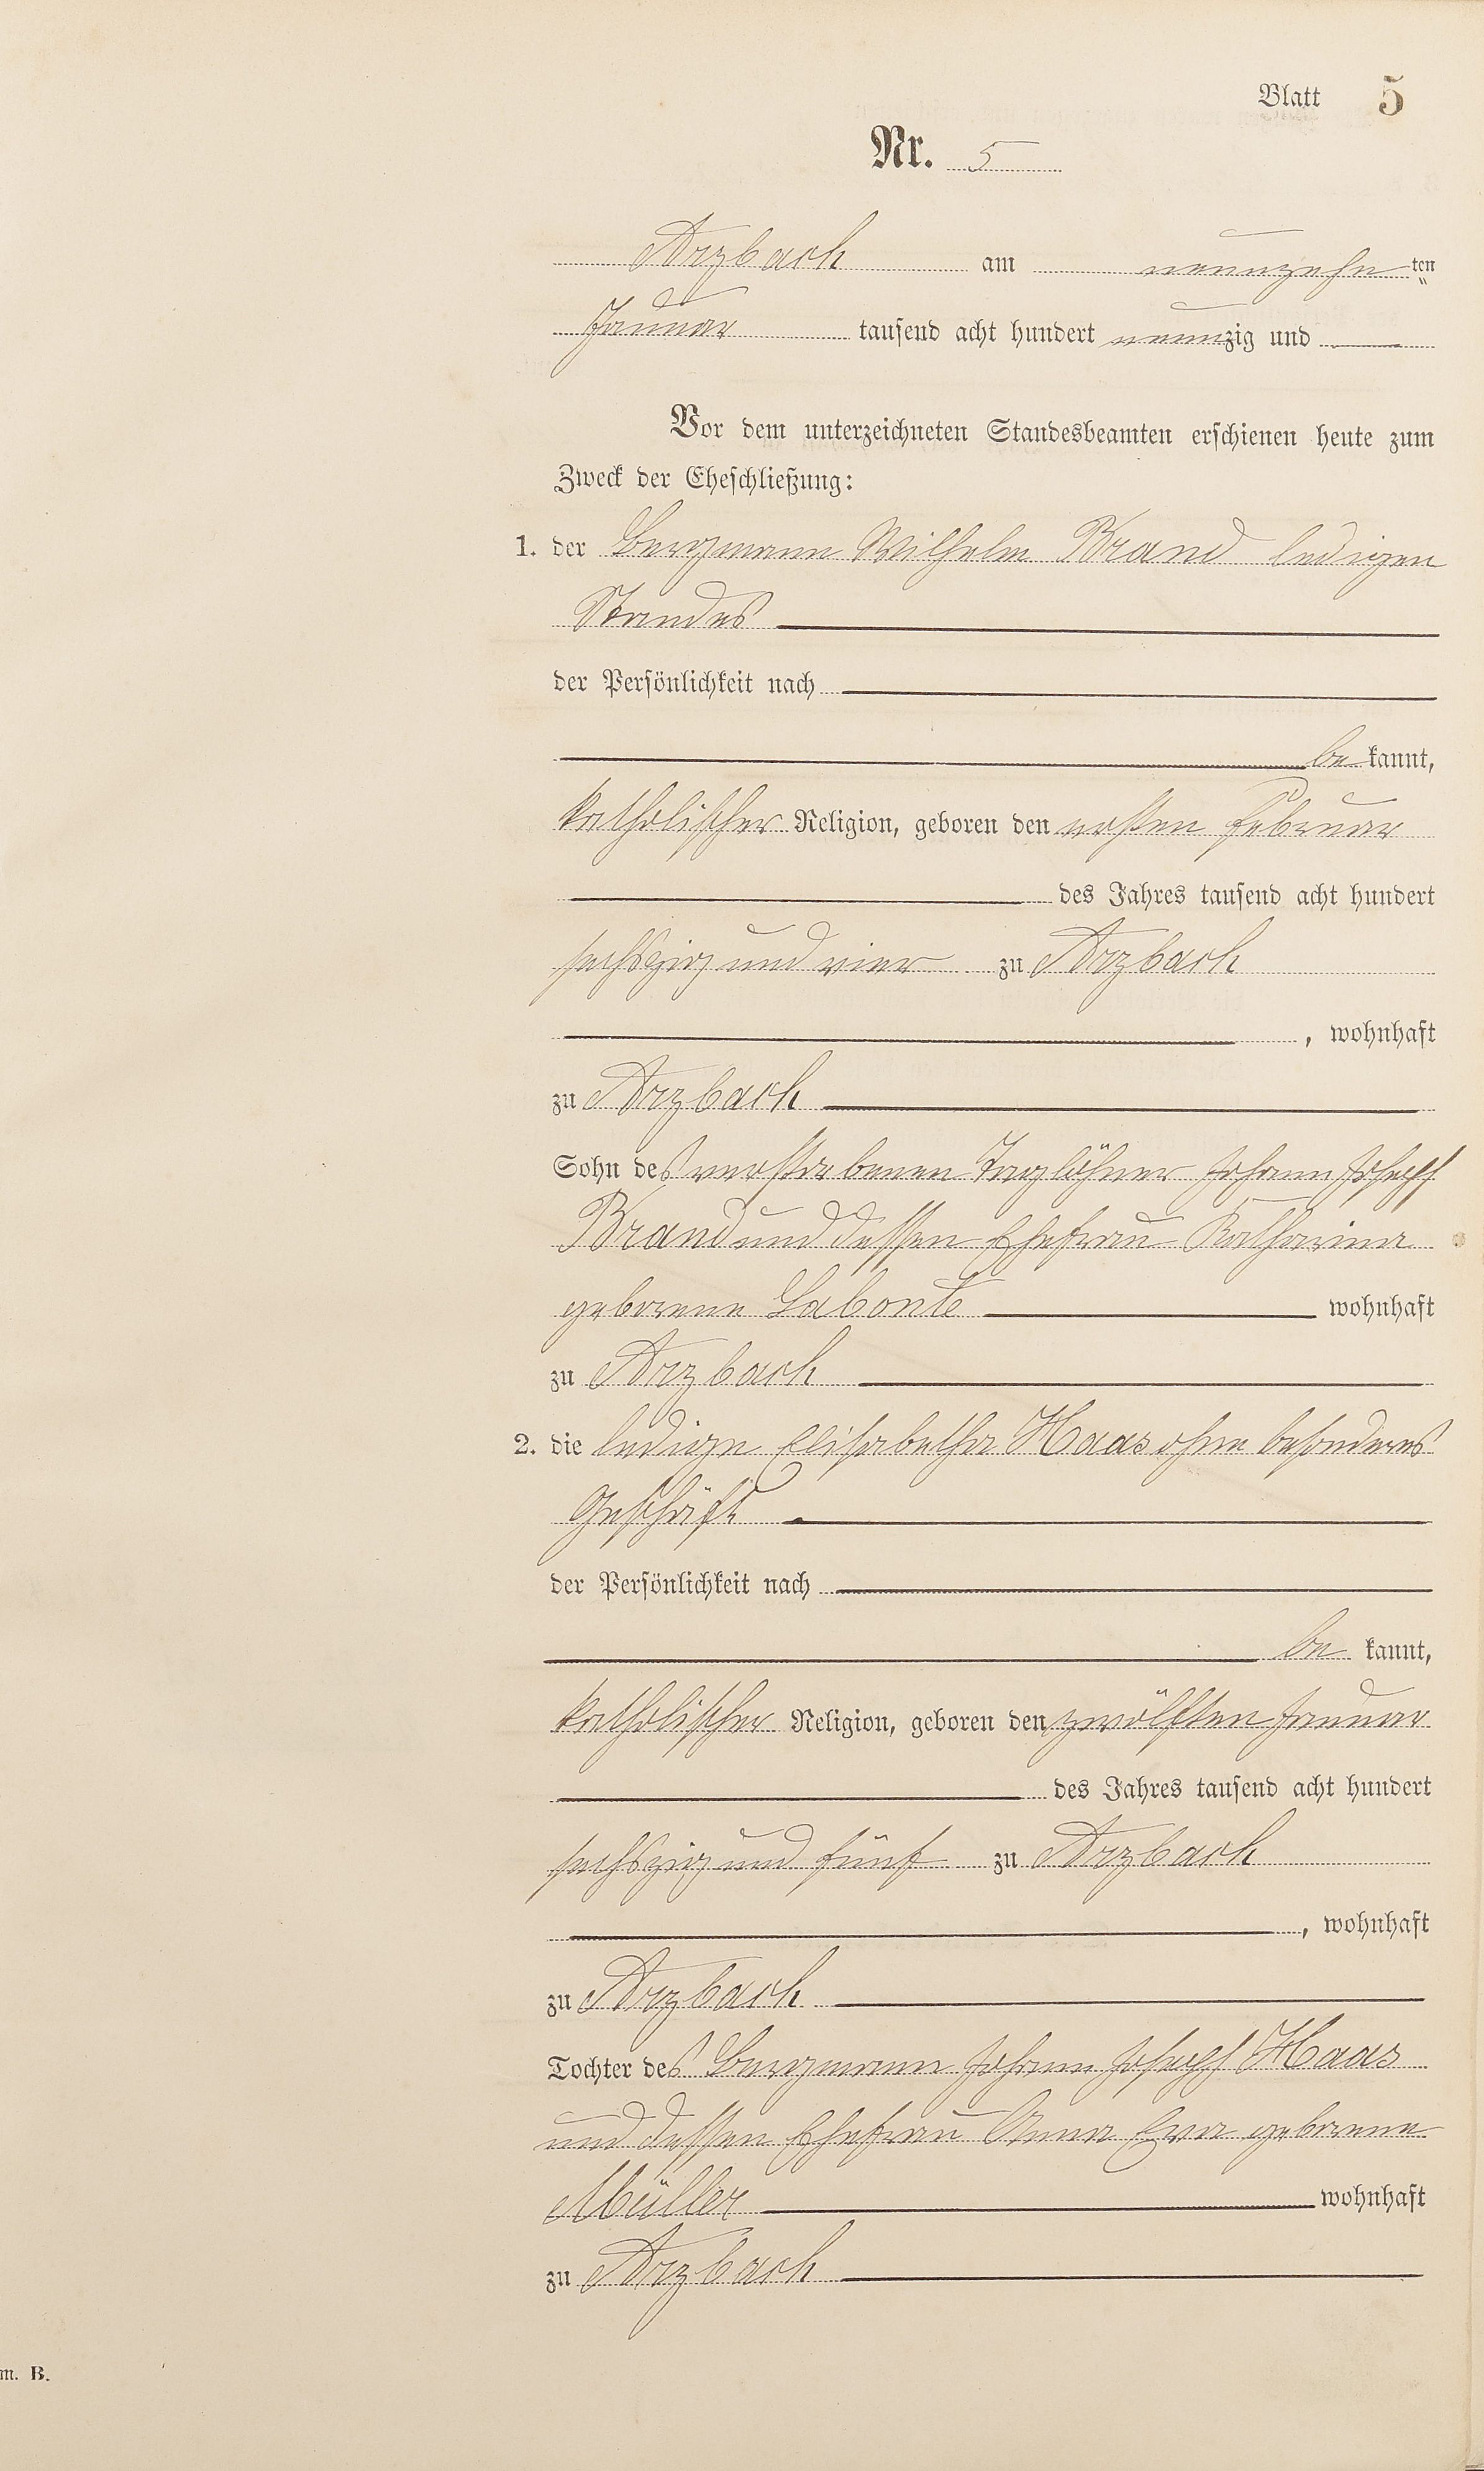 Blatt 5
Nr. 5
Arzbach am neunzehn ten
Januar tausend acht hundert neunzig und
Vor dem unterzeichneten Standesbeamten erschienen heute zum
Zweck der Eheschließung:
1. der Bergmann Wilhelm Brand ledigen
Standes
der Persönlichkeit nach
be kannt,
katholischer Religion, geboren den ersten Februar
des Jahres tausend acht hundert
sechszig und vier zu Arzbach
, wohnhaft
zu Arzbach
Sohn des verstorbenen Taglöhner Johann Joseph
Brand und dessen Ehefrau Katharina
geborene Labonte wohnhaft
zu Arzbach
2. die ledige Elisabetha Haas ohne besonderes
Geschäft
der Persönlichkeit nach
be kannt,
katholischer Religion, geboren den zwölften Januar
des Jahres tausend acht hundert
sechszig und fünf zu Arzbach
, wohnhaft
zu Arzbach
Tochter des Bergmann Johann Joseph Haas
und dessen Ehefrau Anna Eva geborene
Müller wohnhaft
zu Arzbach
m. B.